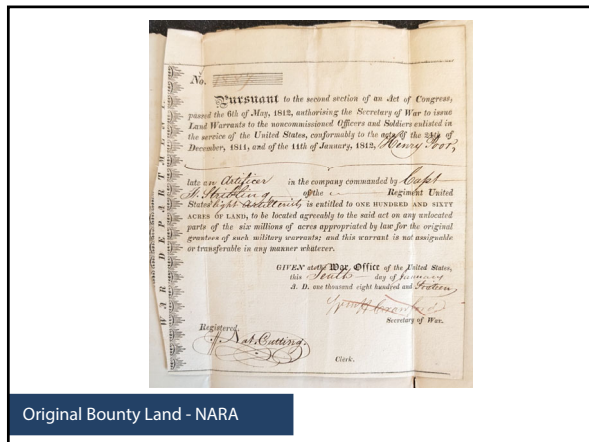 WAR DEPARTMENT
No.
Pursuant to the second section of an Act of Congress,
passed the 6th of May, 1812, authorising the Secretary of War to issue
Land Warrants to the noncommissioned Officers and Soldiers enlisted in
the service of the United States, conformably to the acts of the 24th of
December, 1811, and of the 11th of January, 1812, Henry Poor,
late an Artificer in the company commanded by Capt
of the Regiment United
States light Artillery is entitled to ONE HUNDRED AND SIXTY
ACRES OF LAND, to be located agreeably to the said act on any unlocated
parts of the six millions of acres appropriated by law for the original
grantees of such military warrants; and this warrant is not assignable
or transferable in any manner whatever.
GIVEN at the War Office of the United States,
this Tenth day of January
A. D. one thousand eight hundred and Sixteen
Crawford
Secretary of War.
Registered
Nat. Cutting
Clerk.
Original Bounty Land - NARA